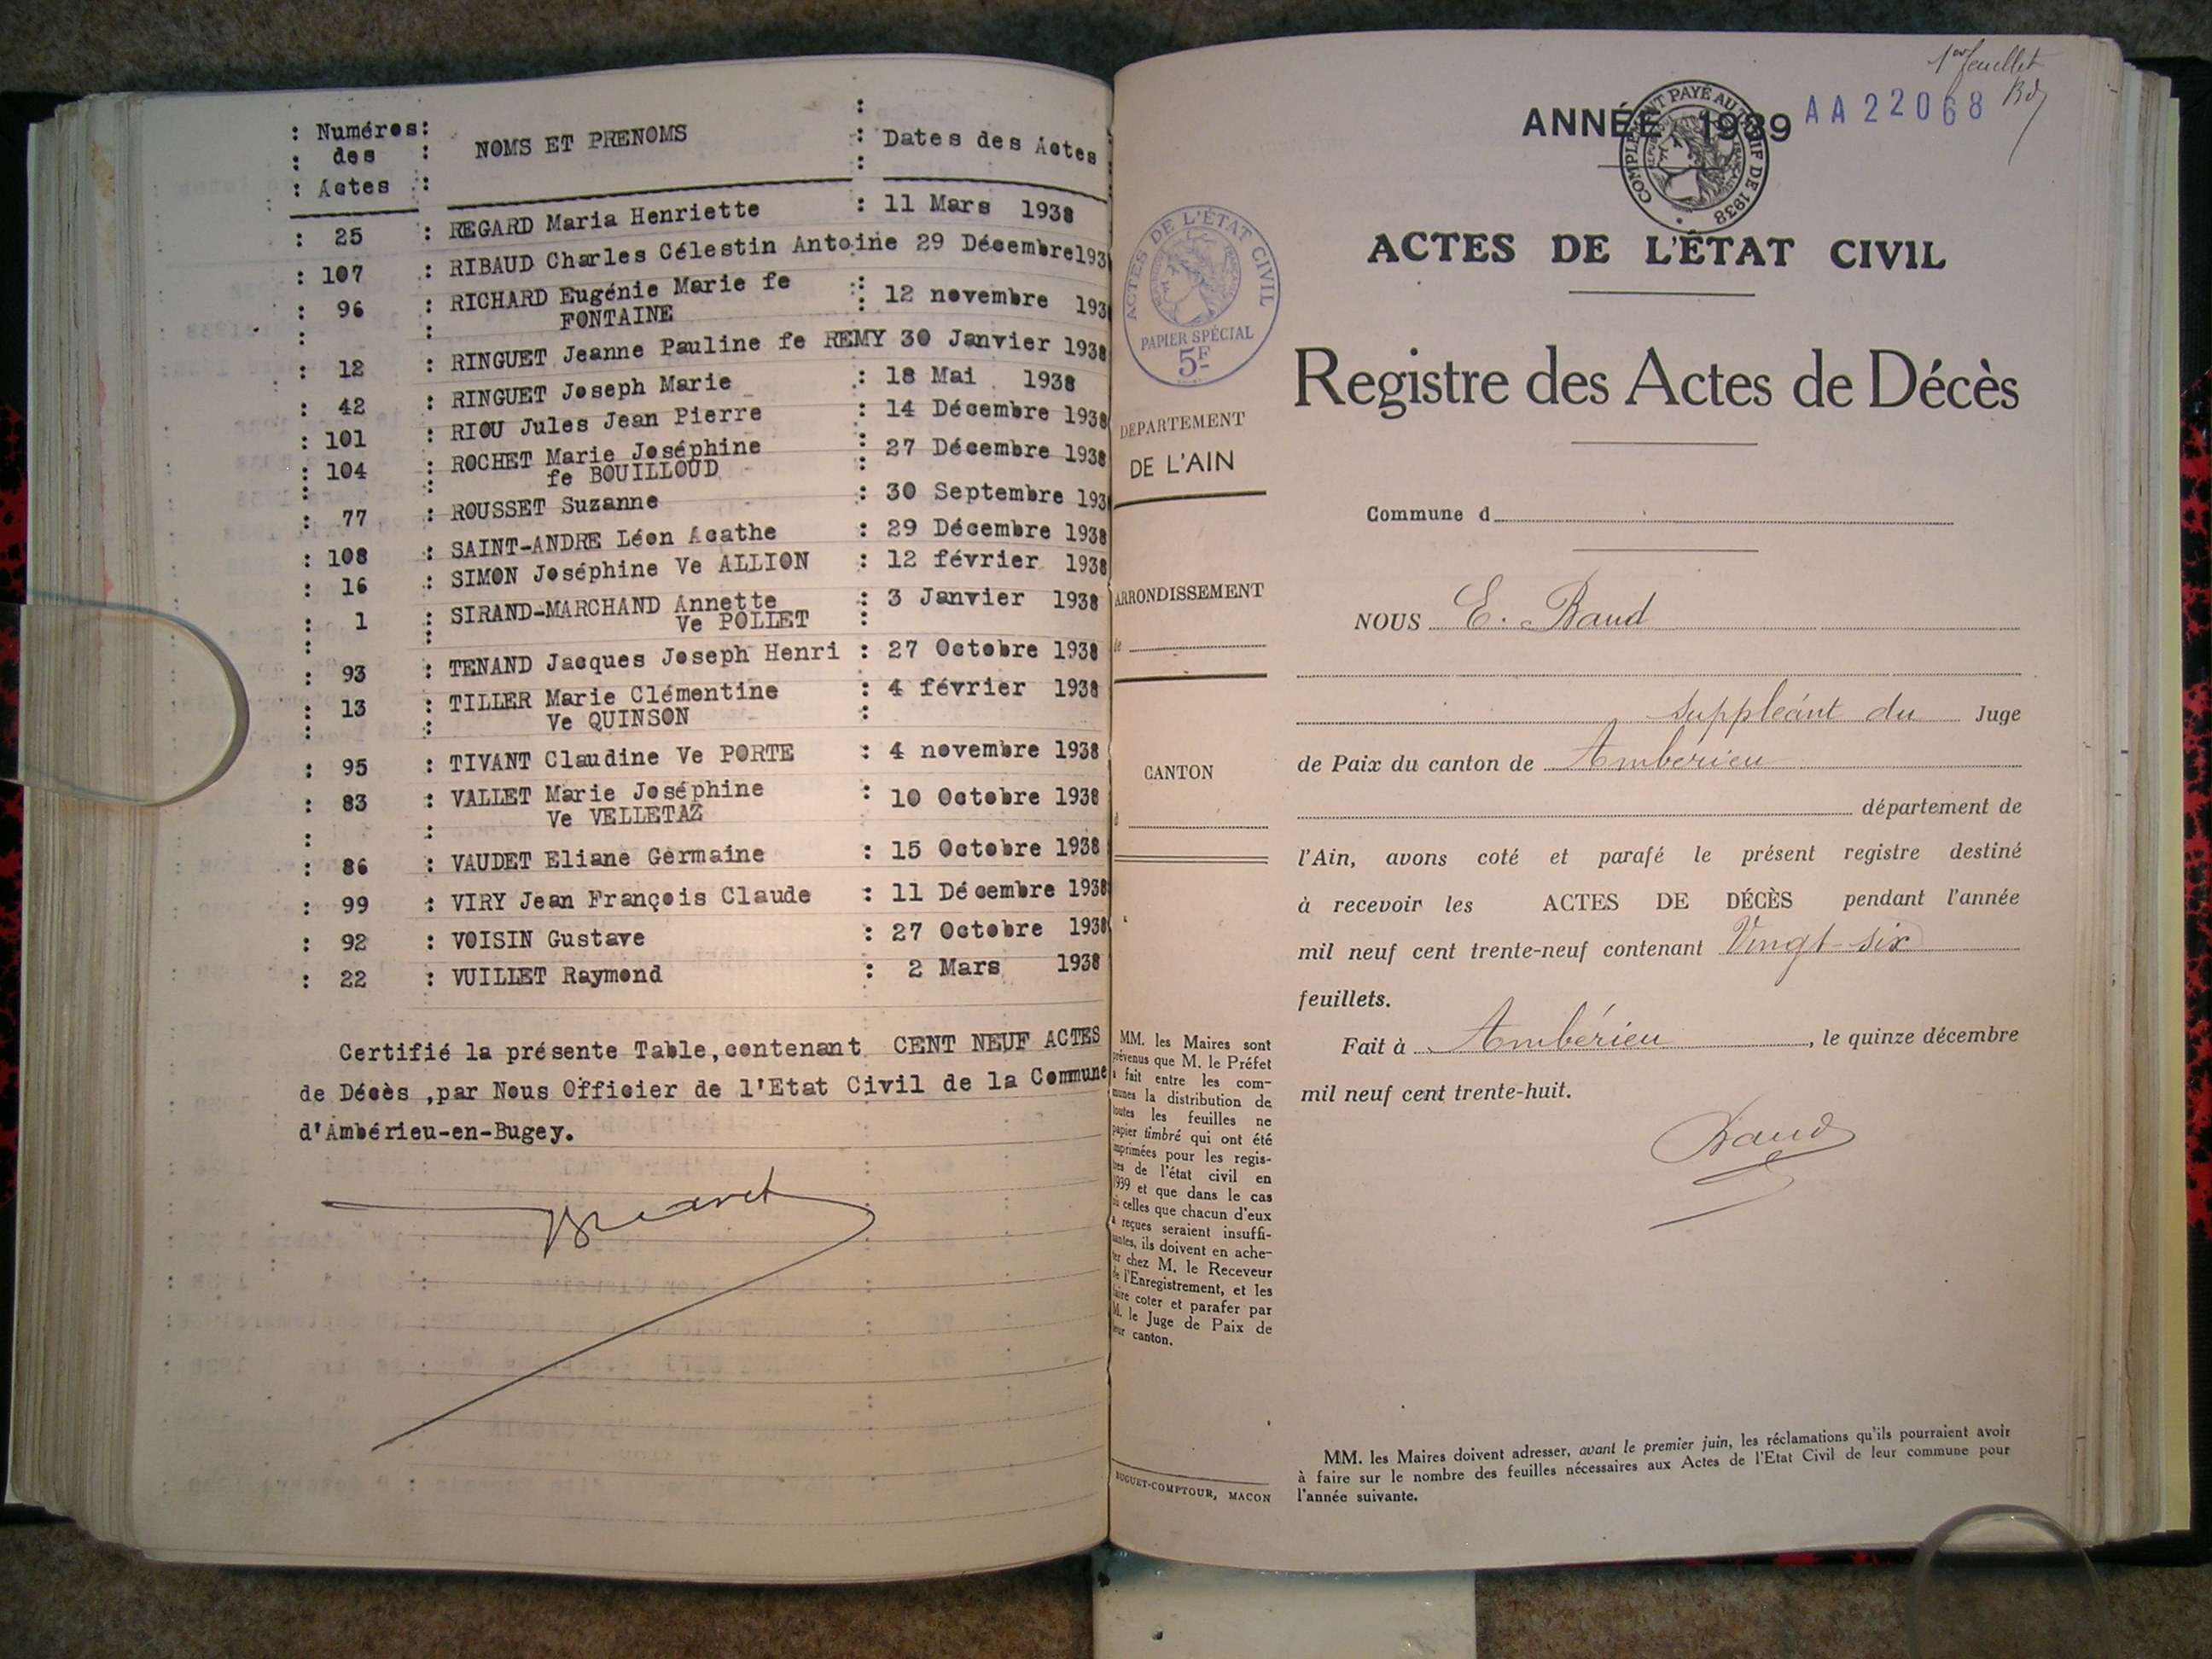 Numéros des Actes : NOMS ET PRENOMS : Dates des Actes
25 : REGARD Maria Henriette : 11 Mars 1938
107 : RIBAUD Charles Célestin Antoine 29 Décembre193
96 : RICHARD Eugénie Marie fe : 12 novembre 193
FONTAINE
12 : RINGUET Jeanne Pauline fe REMY 30 Janvier 1938
42 : RINGUET Joseph Marie : 18 Mai 1938
101 : RIOU Jules Jean Pierre : 14 Décembre 1938
104 : ROCHET Marie Joséphine : 27 Décembre 1938
fe BOUILLOUD
77 : ROUSSET Suzanne : 30 Septembre 193
108 : SAINT-ANDRE Léon Agathe : 29 Décembre 1938
16 : SIMON Joséphine Ve ALLION : 12 février 1938
1 : SIRAND-MARCHAND Annette : 3 Janvier 1938
Ve POLLET
93 : TENAND Jacques Joseph Henri : 27 Octobre 1938
13 : TILLER Marie Clémentine : 4 février 1938
Ve QUINSON
95 : TIVANT Claudine Ve PORTE : 4 novembre 1938
83 : VALLET Marie Joséphine : 10 Octobre 1938
Ve VELLETAZ
86 : VAUDET Eliane Germaine : 15 Octobre 1938
99 : VIRY Jean François Claude : 11 Décembre 1938
92 : VOISIN Gustave : 27 Octobre 1938
22 : VUILLET Raymond : 2 Mars 1938
Certifié la présente Table, contenant CENT NEUF ACTES
de Décès ,par Nous Officier de l'Etat Civil de la Commune
d'Ambérieu-en-Bugey.
1er feuillet
Bd
ANNÉE 1939 AA22068
COMPLEMENT PAYÉ AU TARIF DE 1938
ACTES DE L'ÉTAT CIVIL
PAPIER SPÉCIAL
5F
DEPARTEMENT
DE L'AIN
ARRONDISSEMENT
de
CANTON
d
MM. les Maires sont
prévenus que M. le Préfet
a fait entre les com-
munes la distribution de
toutes les feuilles ne
papier timbré qui ont été
imprimées pour les regis-
tres de l'état civil en
1939 et que dans le cas
où celles que chacun d'eux
a reçues seraient insuffi-
santes, ils doivent en ache-
ter chez M. le Receveur
de l'Enregistrement, et les
faire coter et parafer par
M. le Juge de Paix de
leur canton.
BUGUET-COMPTOUR, MACON
ACTES DE L'ÉTAT CIVIL
Registre des Actes de Décès
Commune d
NOUS E. Baud
suppléant du Juge
de Paix du canton de Ambérieu
département de
l'Ain, avons coté et parafé le présent registre destiné
à recevoir les ACTES DE DÉCÈS pendant l'année
mil neuf cent trente-neuf contenant Vingt-six
feuillets.
Fait à Ambérieu, le quinze décembre
mil neuf cent trente-huit.
Baud
MM. les Maires doivent adresser, avant le premier juin, les réclamations qu'ils pourraient avoir
à faire sur le nombre des feuilles nécessaires aux Actes de l'Etat Civil de leur commune pour
l'année suivante.